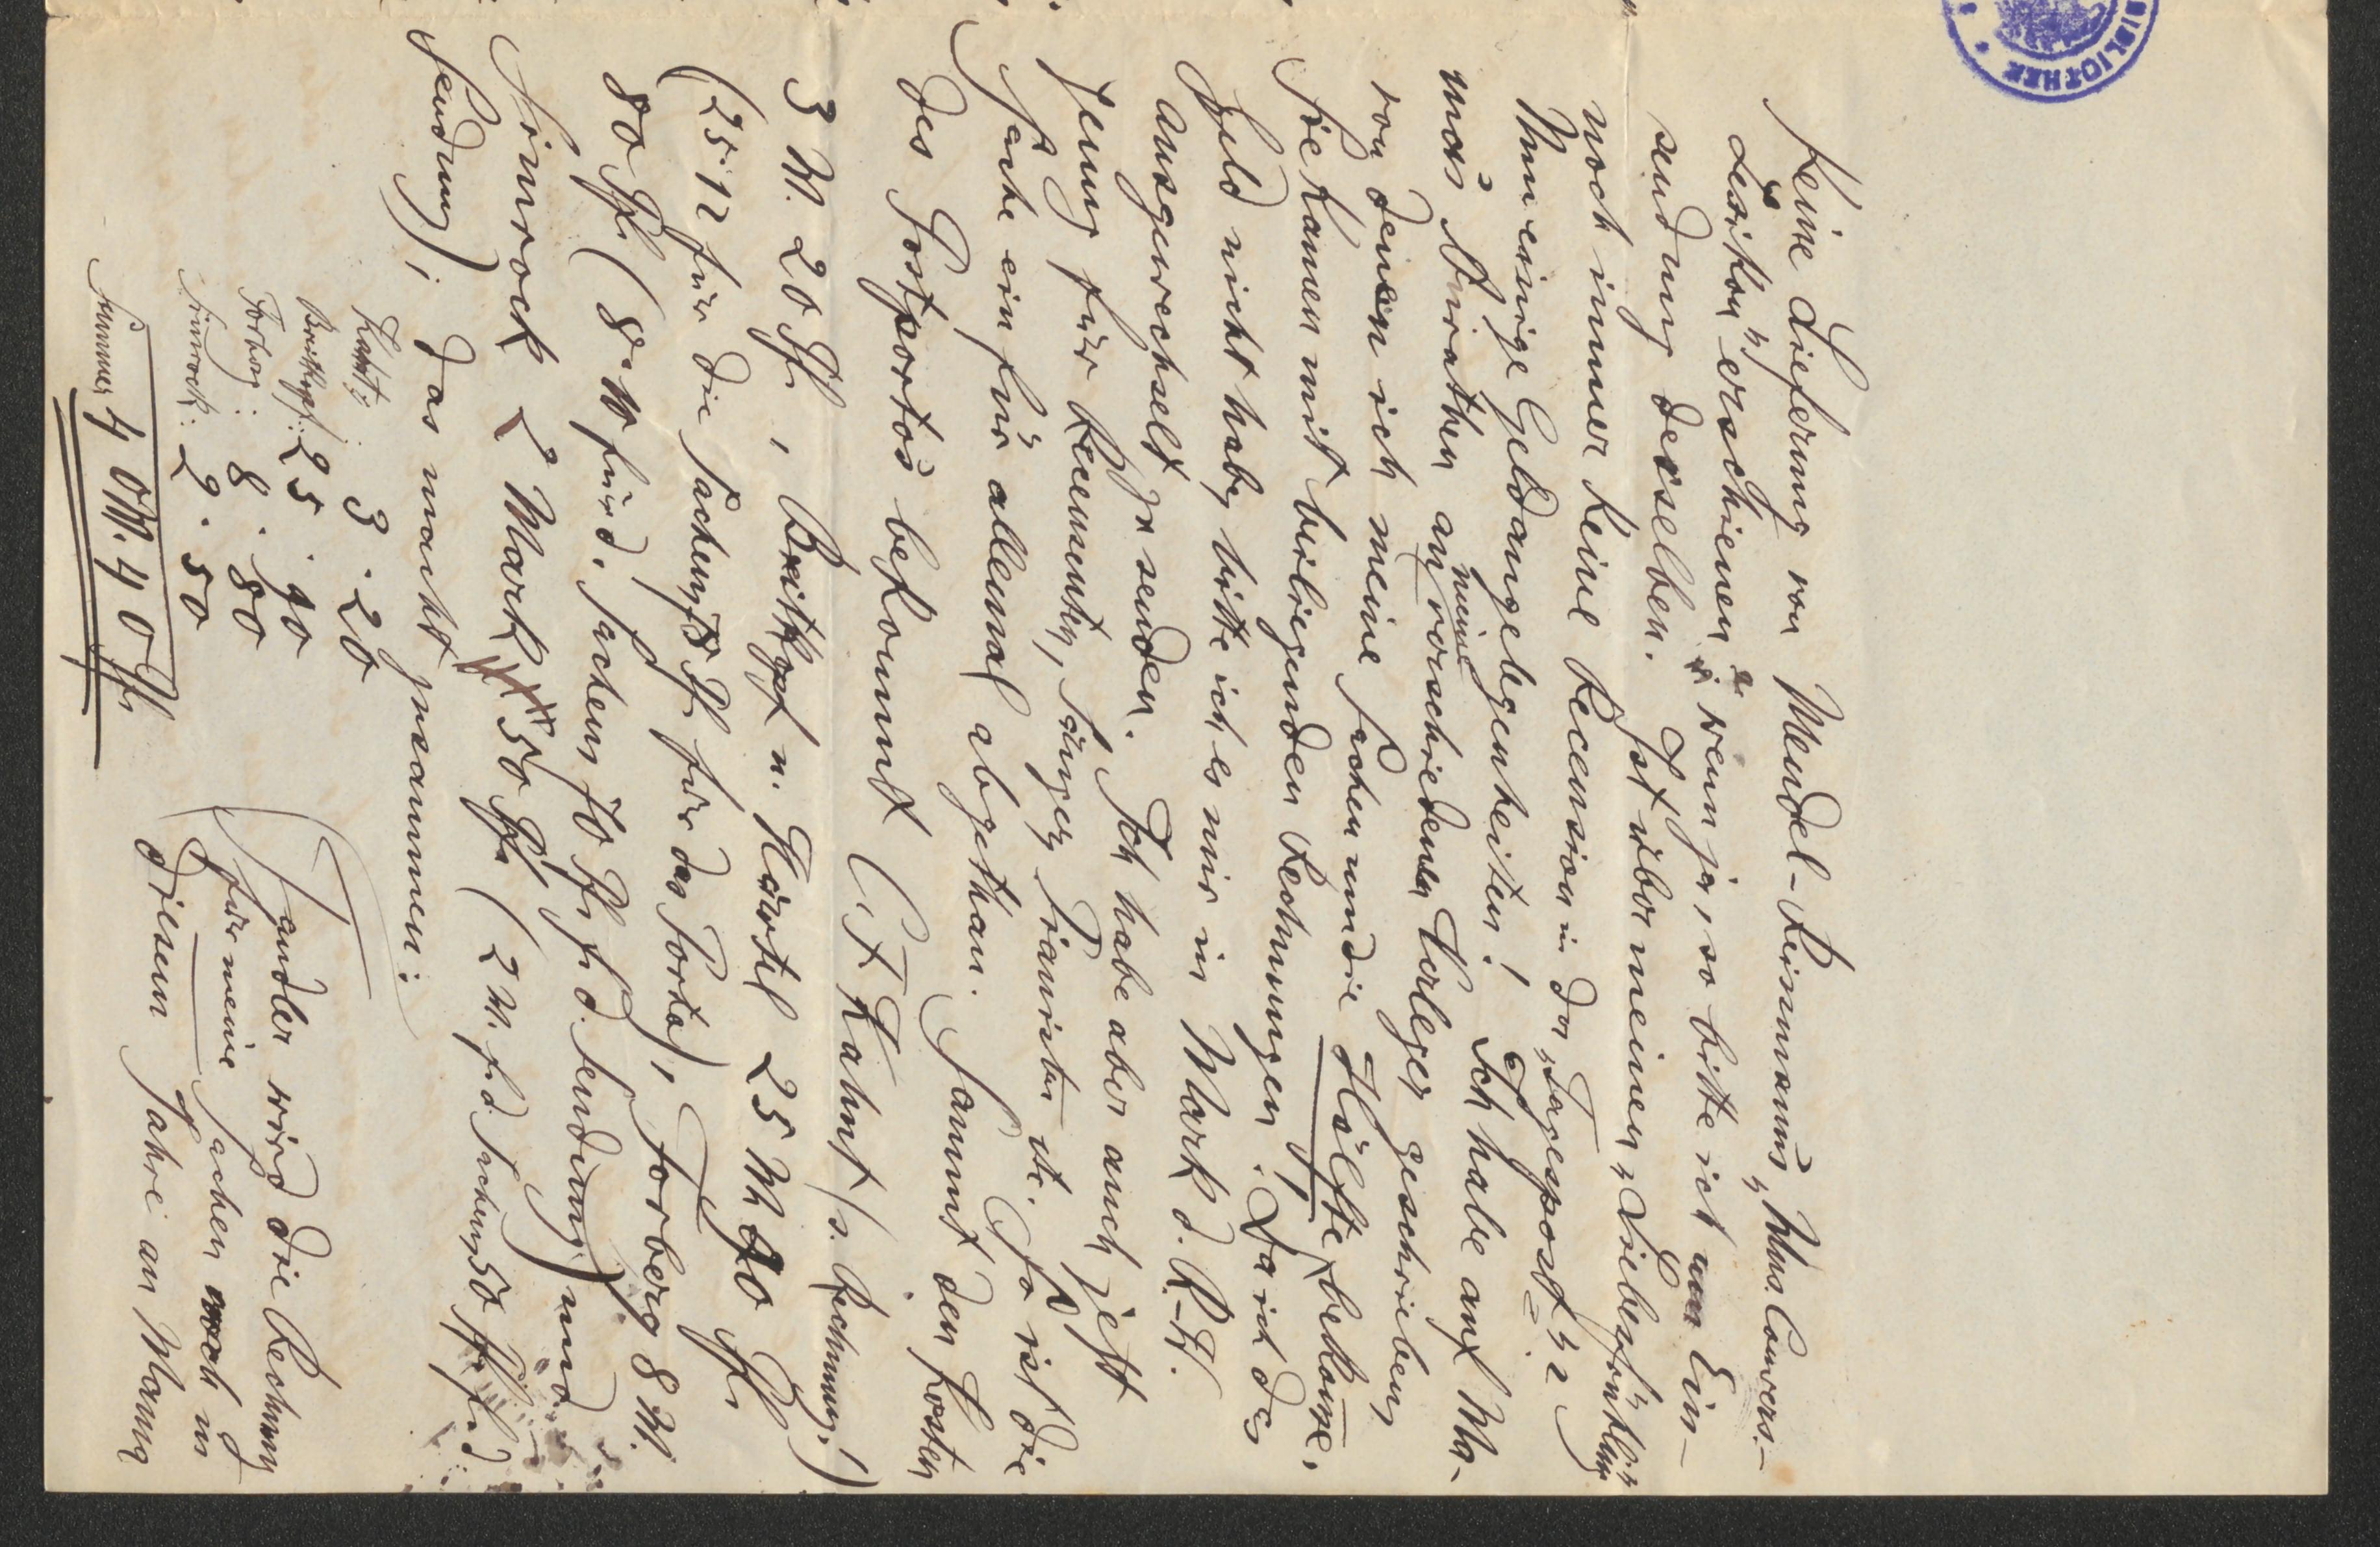 BIBLIOTHEK
Keine Lieferung von Mendel-Reissmann's „Mus. Convers.-
Lexikon" erschienen? wenn ja, so bitte ich um Ein-
sendung derselben. Ist über meinen „Liebesfrühling"
noch immer keine Recension in der „Tagespost"?
Nun einige Geldangelegenheiten! Ich habe auf Ma-
ma's Anrathen an meine verschiedenen Verleger geschrieben,
von denen ich meine Sachen um die Hälfte bekomme.
Sie kamen mit beiliegenden Rechnungen. Da ich das
Geld nicht habe, bitte ich es mir in Mark d. R.-W.
ausgewechselt zu senden. Ich habe aber auch jetzt
genug für Recensenten, Sänger, Pianisten etc. So ist die
Sache ein für allemal abgethan. Sammt den Kosten
des Postportos bekommt C. F. Kahnt (s. Rechnung!)
3 M. 20 Pf., Breitkopf u. Härtel 25 M 90 Pf.
(25·12 für die Sachen, Pf. für das Porto), Forberg 8 M.
80 Pf. (8·10 für d. Sachen, 70 Pf. f. d. Sendung) und
Simrock 2 Mark 50 Pf. (2 M. f. d. Sachen, 50 Pf. f. d.
Sendung); das macht zusammen:
Kahnt: 3 · 20
Breitkopf: 25 · 90
Forberg: 8 · 80
Simrock: 2 · 50
Summe 40 M. 40 Pf.
wird die Rechnung
für meine Sachen noch in
diesem Jahre an Mama